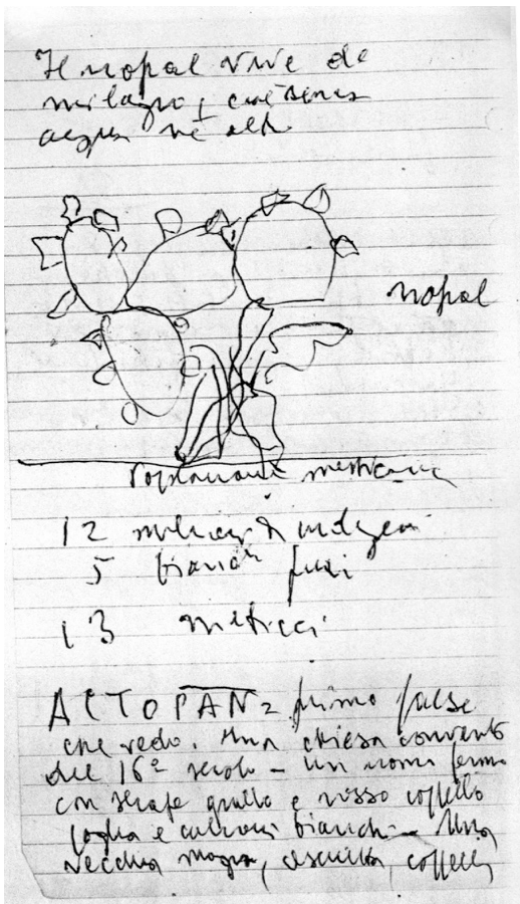 Il nopal vive de
milagro, cioè senza
acqua né altro
nopal
Popolazione messicana
12 milioni di indigeni
5 bianchi puri
13 meticci
ACTOPAN = primo paese
che vedo. Una chiesa convento
del 16º secolo – Un uomo fermo
con serape giallo e rosso cappello
paglia e calzoni bianchi – Una
vecchia magra, asciutta, capelli